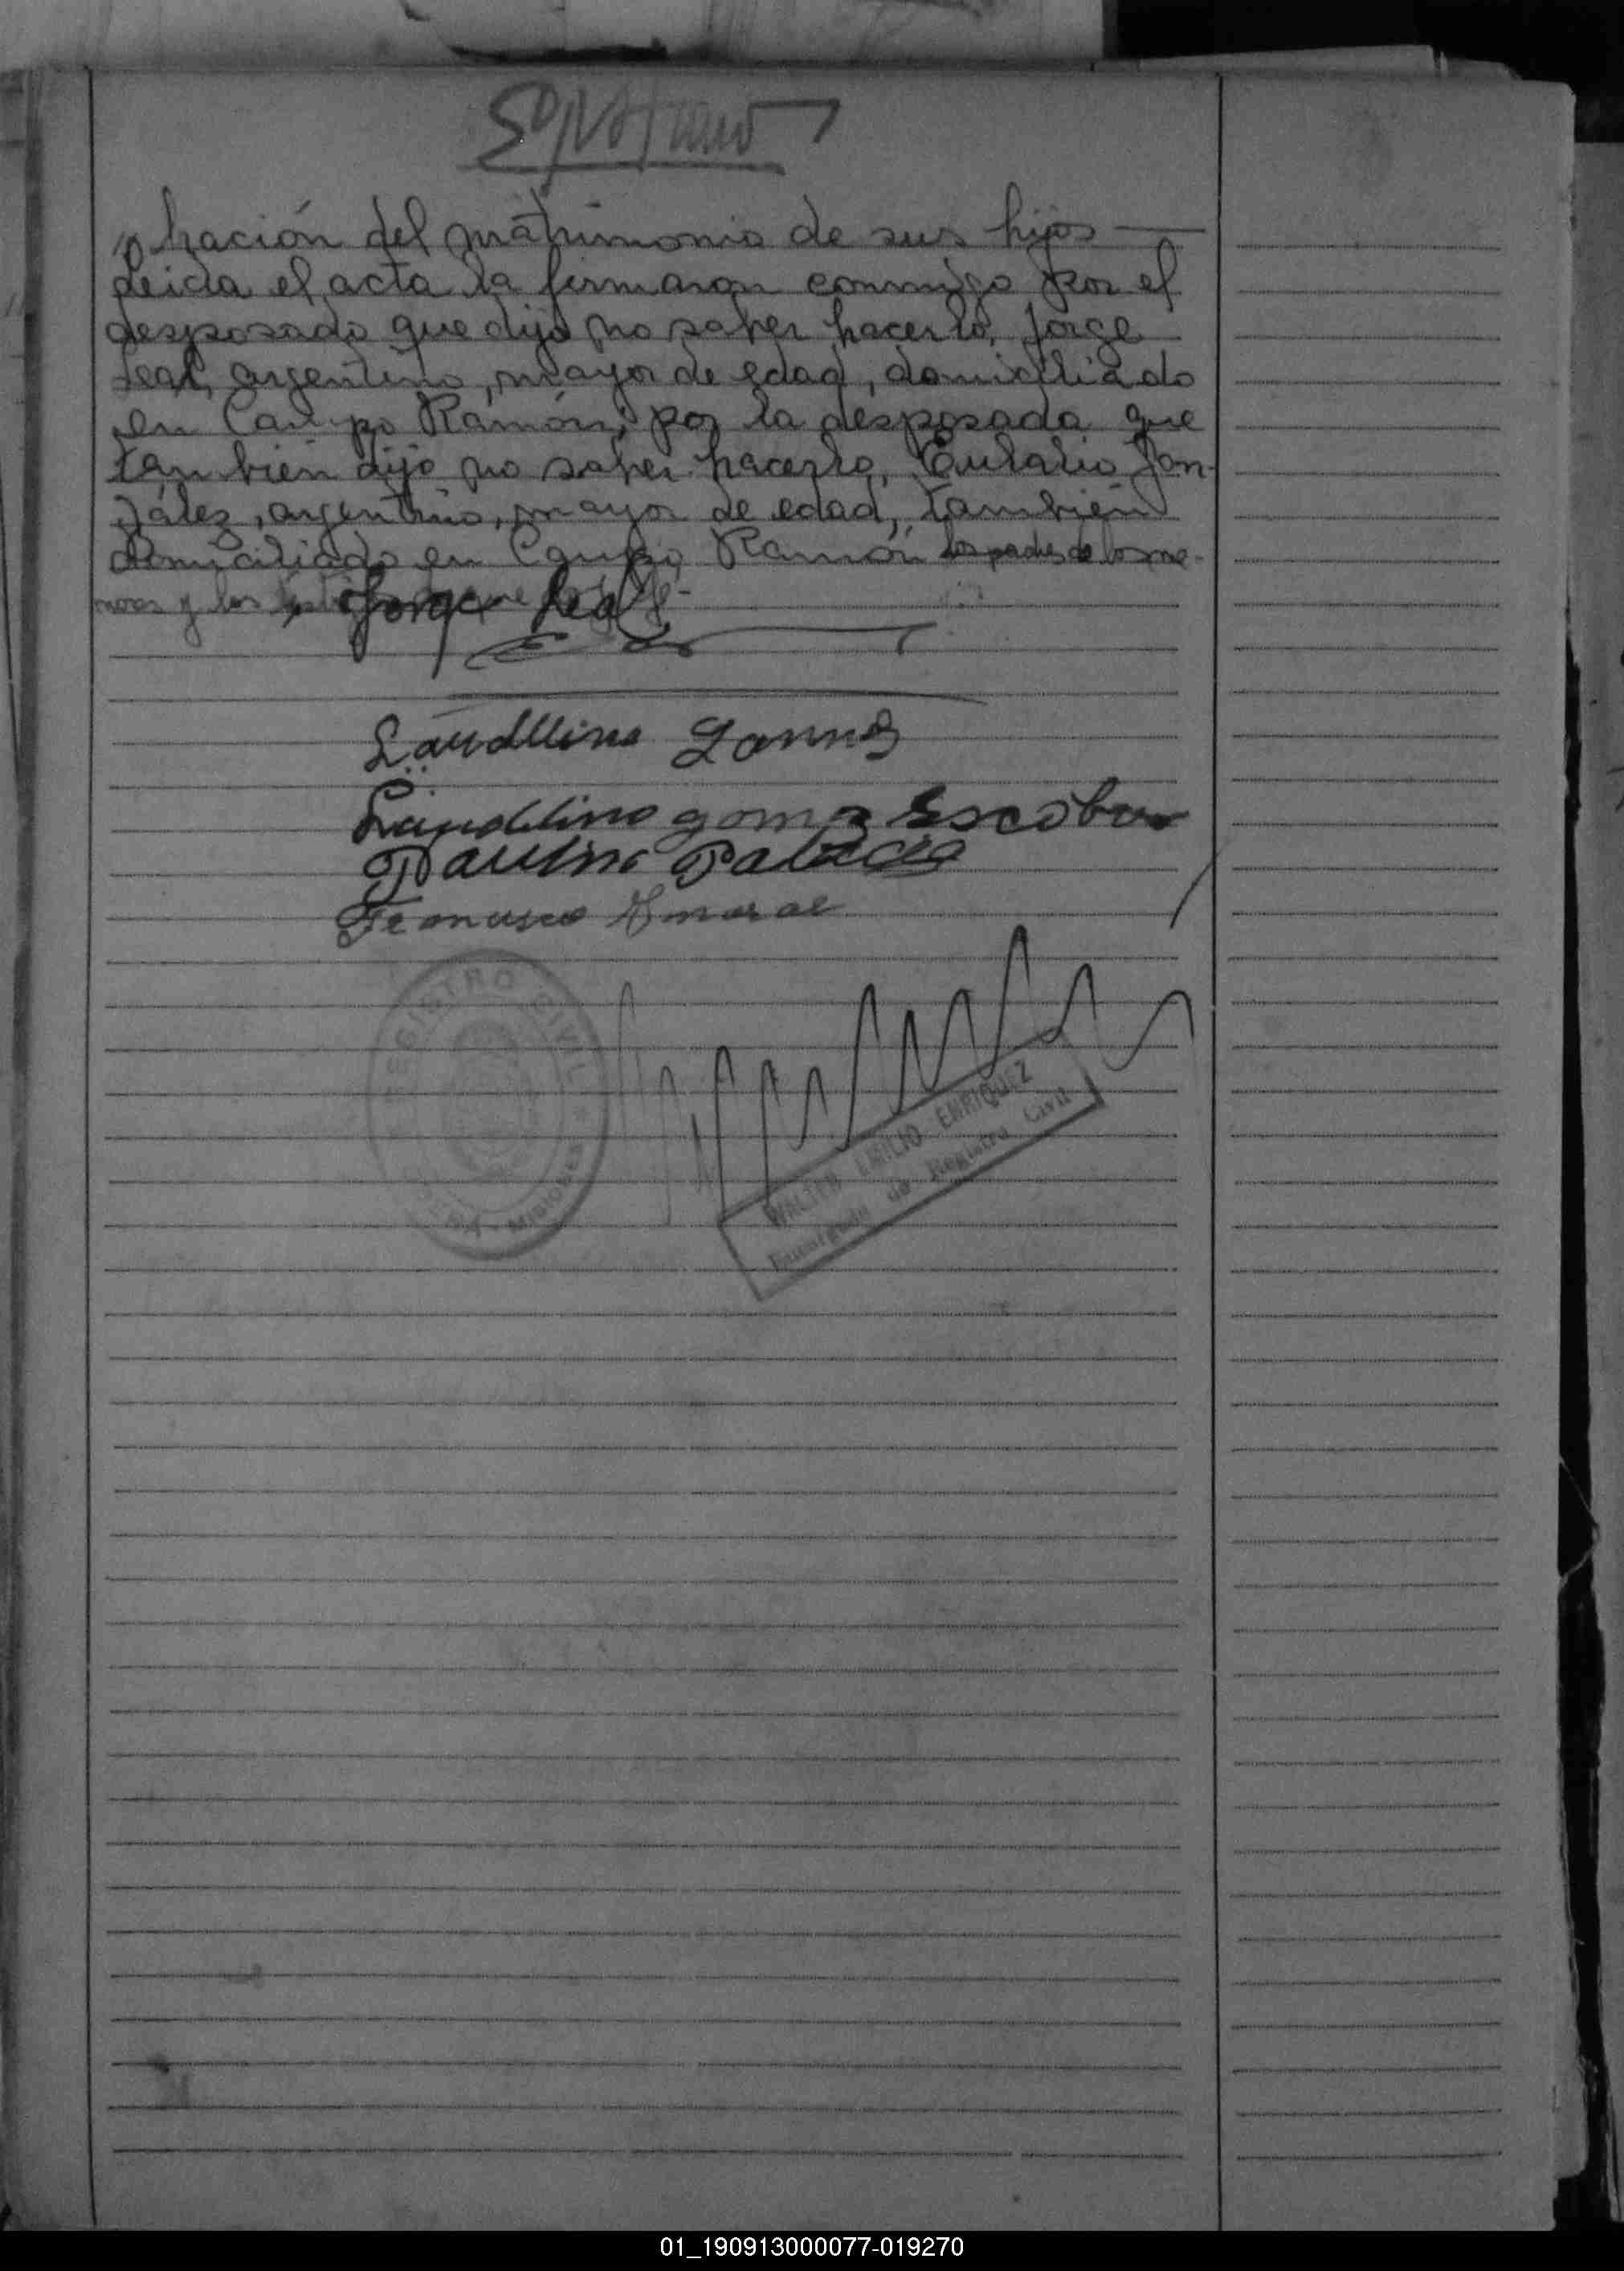 bración del matrimonio de sus hijos
Leida el acta la firmaron conmigo por el
desposado que dijo no saber hacerlo, Jorge
Leal, argentino, mayor de edad, domiciliado
en Campo Ramón; por la desposada que
tambien dijo no saber hacerlo, Eulalio Gon-
zález, argentino, mayor de edad, también
domiciliado en Campo Ramón los padres de los me-
nores y los
Jorge Leal
Laudelino
Laudelino gomez Escobar
Paulino Palacio
Francisco Amaral
REGISTRO CIVIL
MISIONES
WALTER EMILIO ENRIQUEZ
Encargado de Registro Civil
01_190913000077-019270